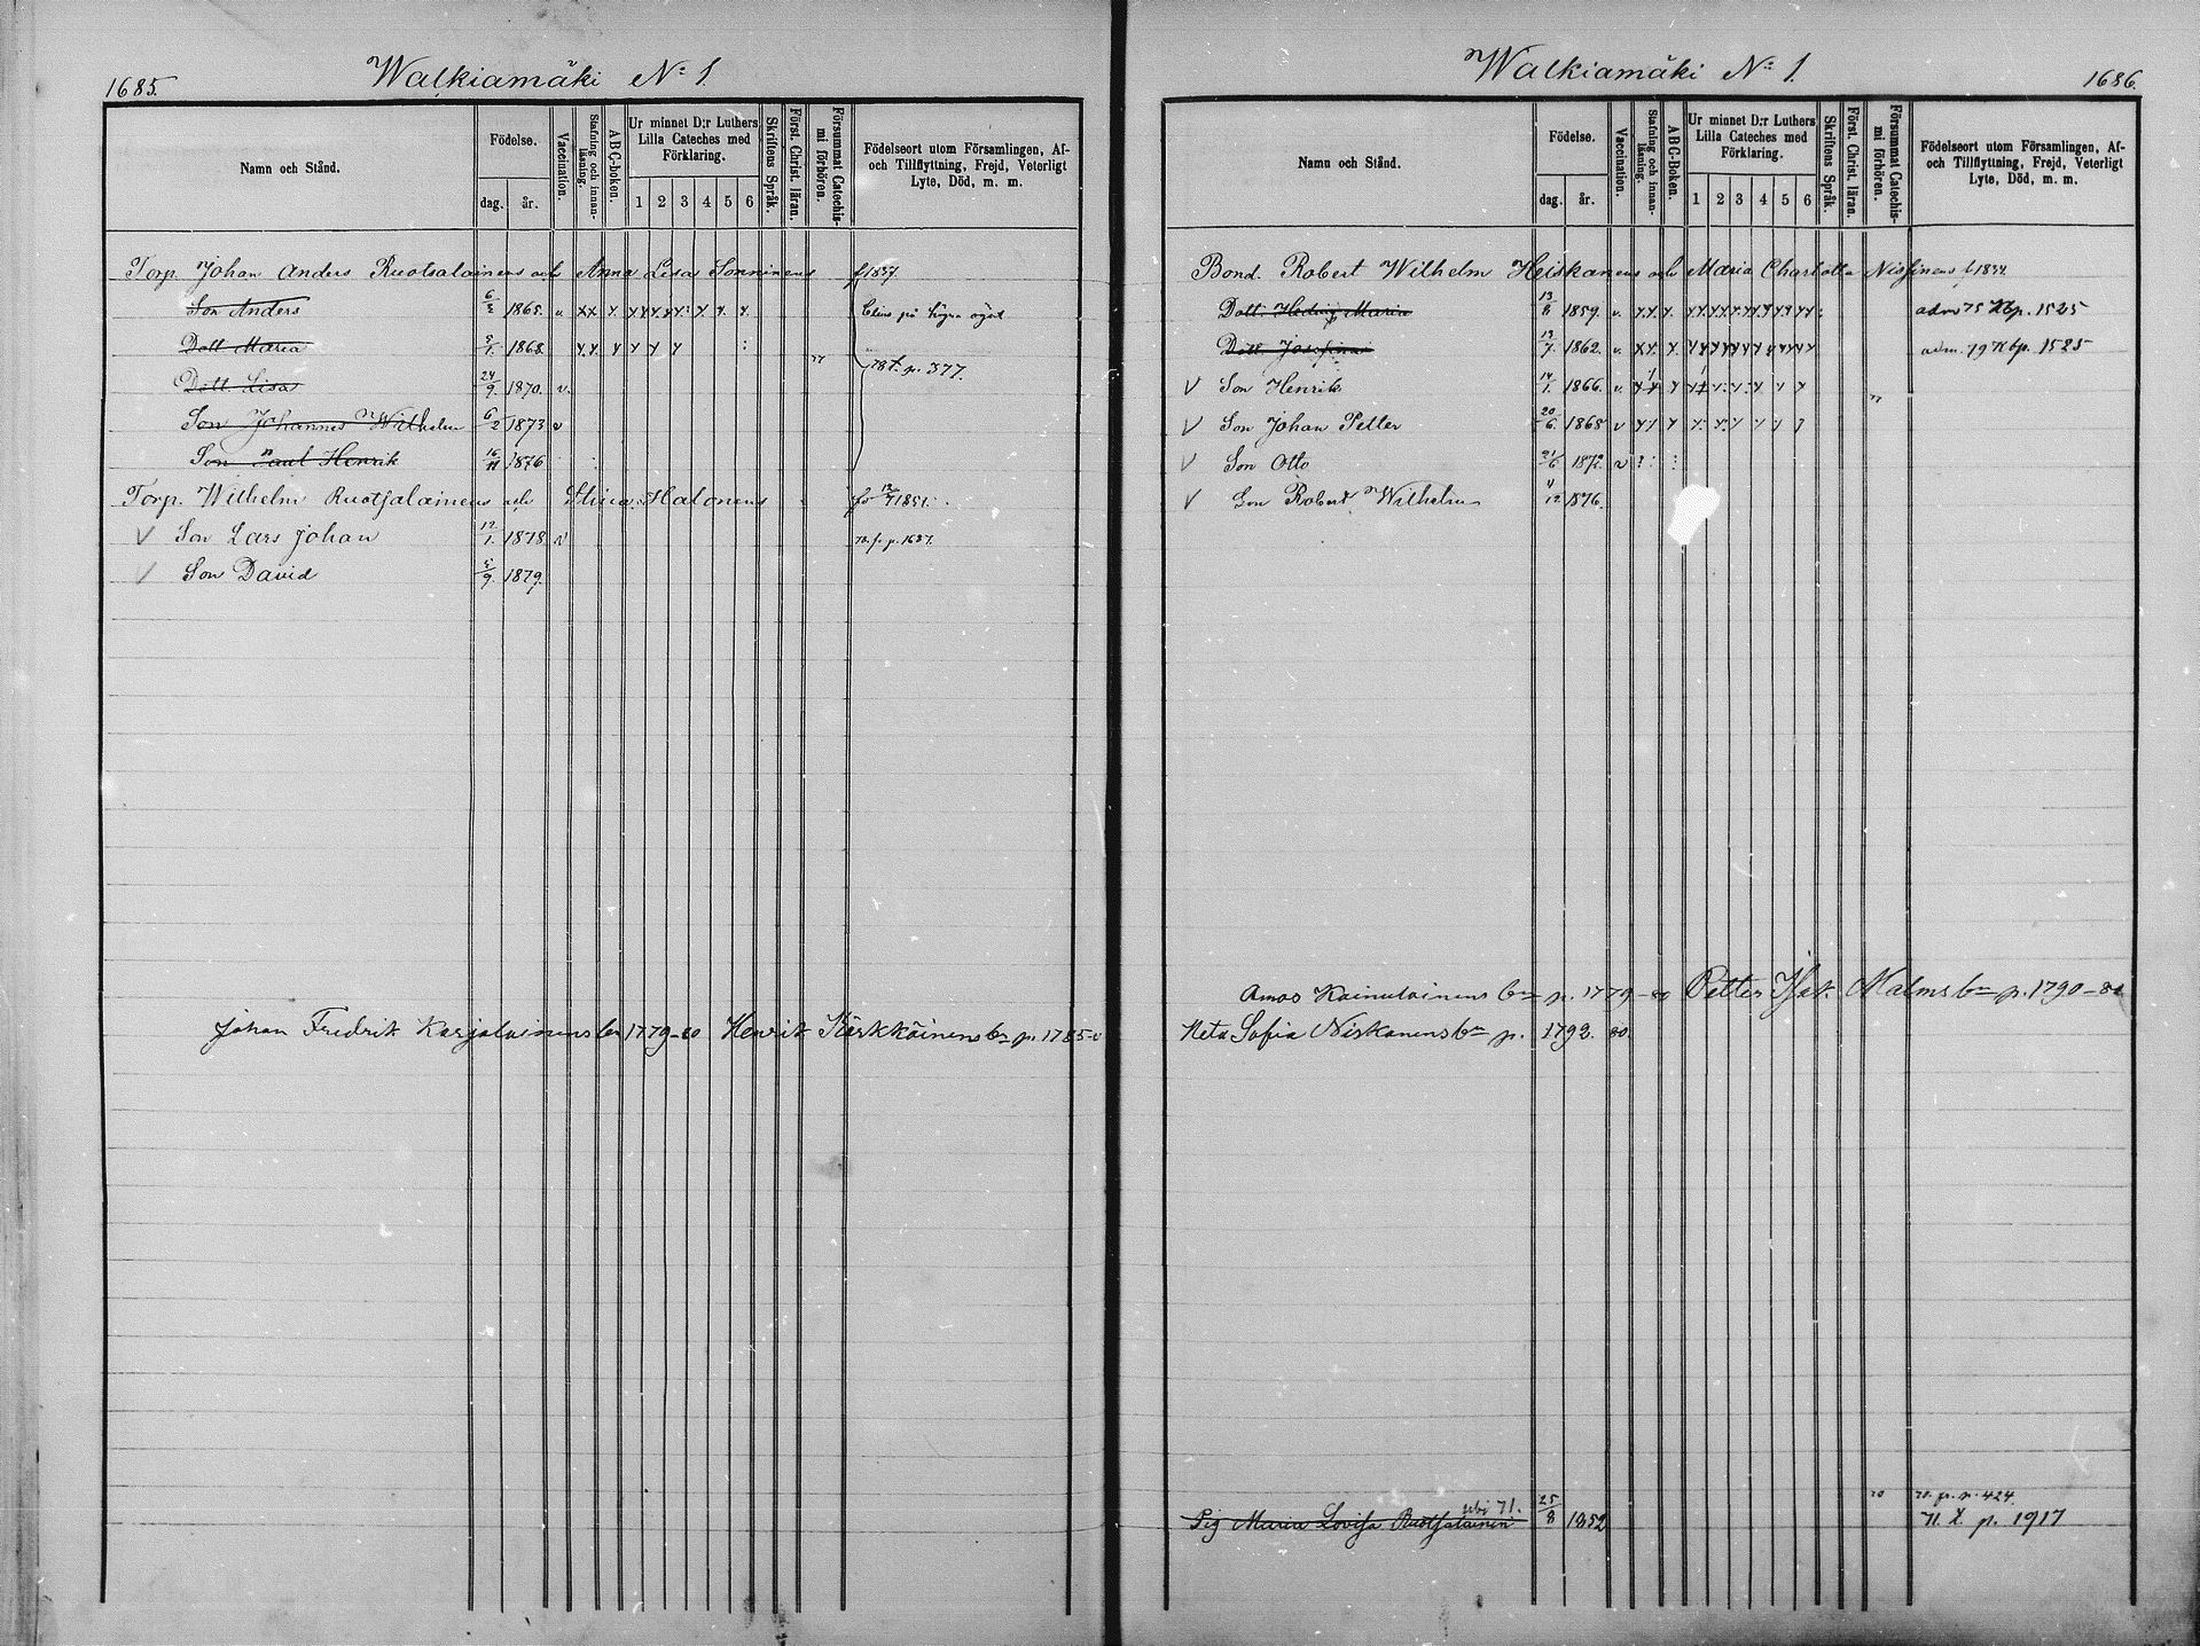 1685.
Walkiamäki № 1.
Namn och Stånd.
Födelse.
dag.
år.
Vaccination.
Stafning och innan-läsning.
ABC-Boken.
Ur minnet D:r Luthers
Lilla Cateches med
Förklaring.
1 2 3 4 5 6
Skriftens Språk.
Först. Christ. läran.
Försummat Catechis-
mi förhören.
Födelseort utom Församlingen, Af-
och Tillflyttning, Frejd, Veterligt
Lyte, Död, m. m.
Torp. Johan Anders Ruotsalainens och Anna Lisa Sonninens f 1837.
Son Anders 1865. v.
Dott Maria 1868.
78 p. 377.
Dott Lisa 24/9. 1870. v.
Son Johannes Wilhelm 6/2 1873 v
Son Paul Henrik 16/11 1876
Torp. Wilhelm Ruotsalainens och Stina Halonens 1851.
V Son Lars Johan 1878 v
Son David 5/9. 1879.
Johan Fredrik Karjalainens bn 1779-80 Henrik Kärkkäinens bn p. 1785
Walkiamäki № 1.
1686.
Namn och Stånd.
Födelse.
dag.
år.
Vaccination.
Stafning och innan-läsning.
ABC-Boken.
Ur minnet D:r Luthers
Lilla Cateches med
Förklaring.
1 2 3 4 5 6
Skriftens Språk.
Först. Christ. läran.
Försummat Catechis-
mi förhören.
Födelseort utom Församlingen, Af-
och Tillflyttning, Frejd, Veterligt
Lyte, Död, m. m.
Bond. Robert Wilhelm Heiskanens och Maria Charlotta Nissinens
Dott. Hedvig Maria 13/8 1859. v. adm 75 Nbp. 1525
Dott Josefina 13/7. 1862. v. adm. 79 Nbp. 1525
V Son Henrik 14/1. 1866. v.
V Son Johan Petter 20/6. 1868 v
V Son Otto 21/6 1872. v
V Son Robert Wilhelm 4/12 1876.
Amos Kainulainens bn p. 1779-80 Petter Isak Malms bn p. 1790-80
Neta Sofia Niskanens bn p. 1792. 80.
Pig Maria Lovisa Ruotsalainen 71. 25/8 1852 70. fr. p. 424.
71. p. 1917